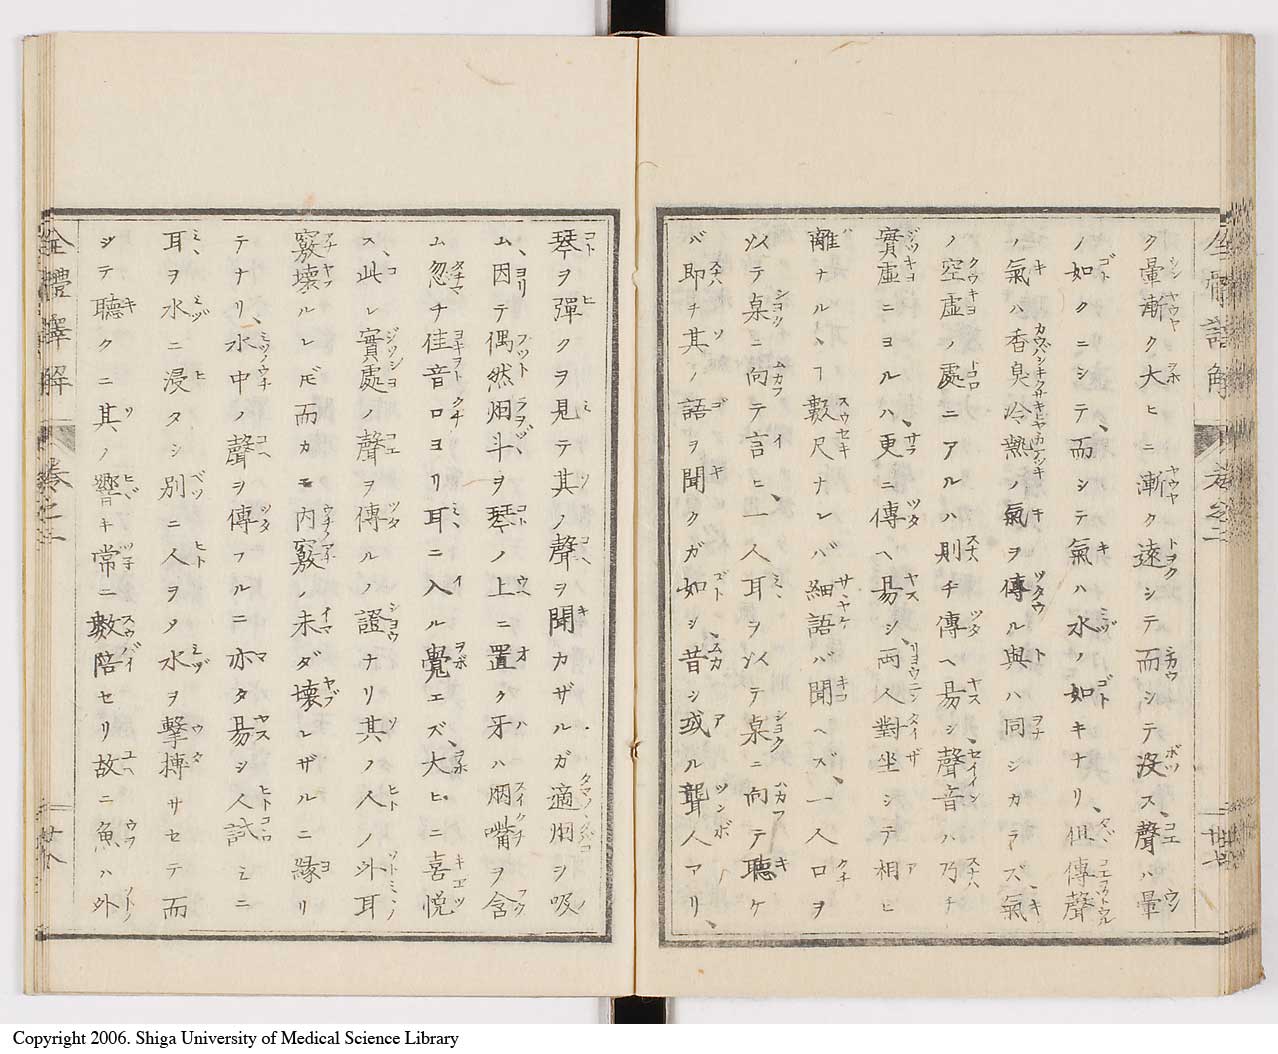 ク暈漸ク大ヒニ漸ク遠シテ而シテ没ス聲ハ暈
ノ如クニシテ、而シテ氣ハ水ノ如キナリ、但傳聲
ノ氣ハ香臭冷熱ノ氣ヲ傳ル與ハ同シカラズ氣
ノ空虚ノ處ニアルハ則チ傳ヘ易シ、聲音ハ乃チ
實虚ニヨルハ、更ニ傳ヘ易シ、両人對坐シテ相ヒ
離ナルヽヿ數尺ナレバ細語バ聞ヘズ、一人口ヲ
以テ桌ニ向テ言ヒ、一人耳ヲ以テ桌ニ向テ聴ケ
バ即チ其ノ語ヲ聞クガ如シ、昔シ或ル聾人アリ、
琴ヲ彈クヲ見テ其ノ聲ヲ聞カザルガ適烟ヲ吸
ム、因テ偶然烟斗ヲ琴ノ上ニ置ク牙ハ烟嘴ヲ含
ム忽チ佳音口ヨリ耳ニ入ル覺エズ、大ヒニ喜悦
ス、此レ實處ノ聲ヲ傳ルノ證ナリ其ノ人ノ外耳
竅壊ルレ𪜈而カモ内竅ノ未ダ壊レザルニ縁リ
テナリ、水中ノ聲ヲ傳フルニ亦タ易シ人試ミニ
耳ヲ水ニ浸タシ別ニ人ヲメ水ヲ撃摶サセテ而
シテ聽クニ其ノ響キ常ニ數陪セリ故ニ魚ハ外
全體譯解
卷之二
廿八
Copyright 2006. Shiga University of Medical Science Library